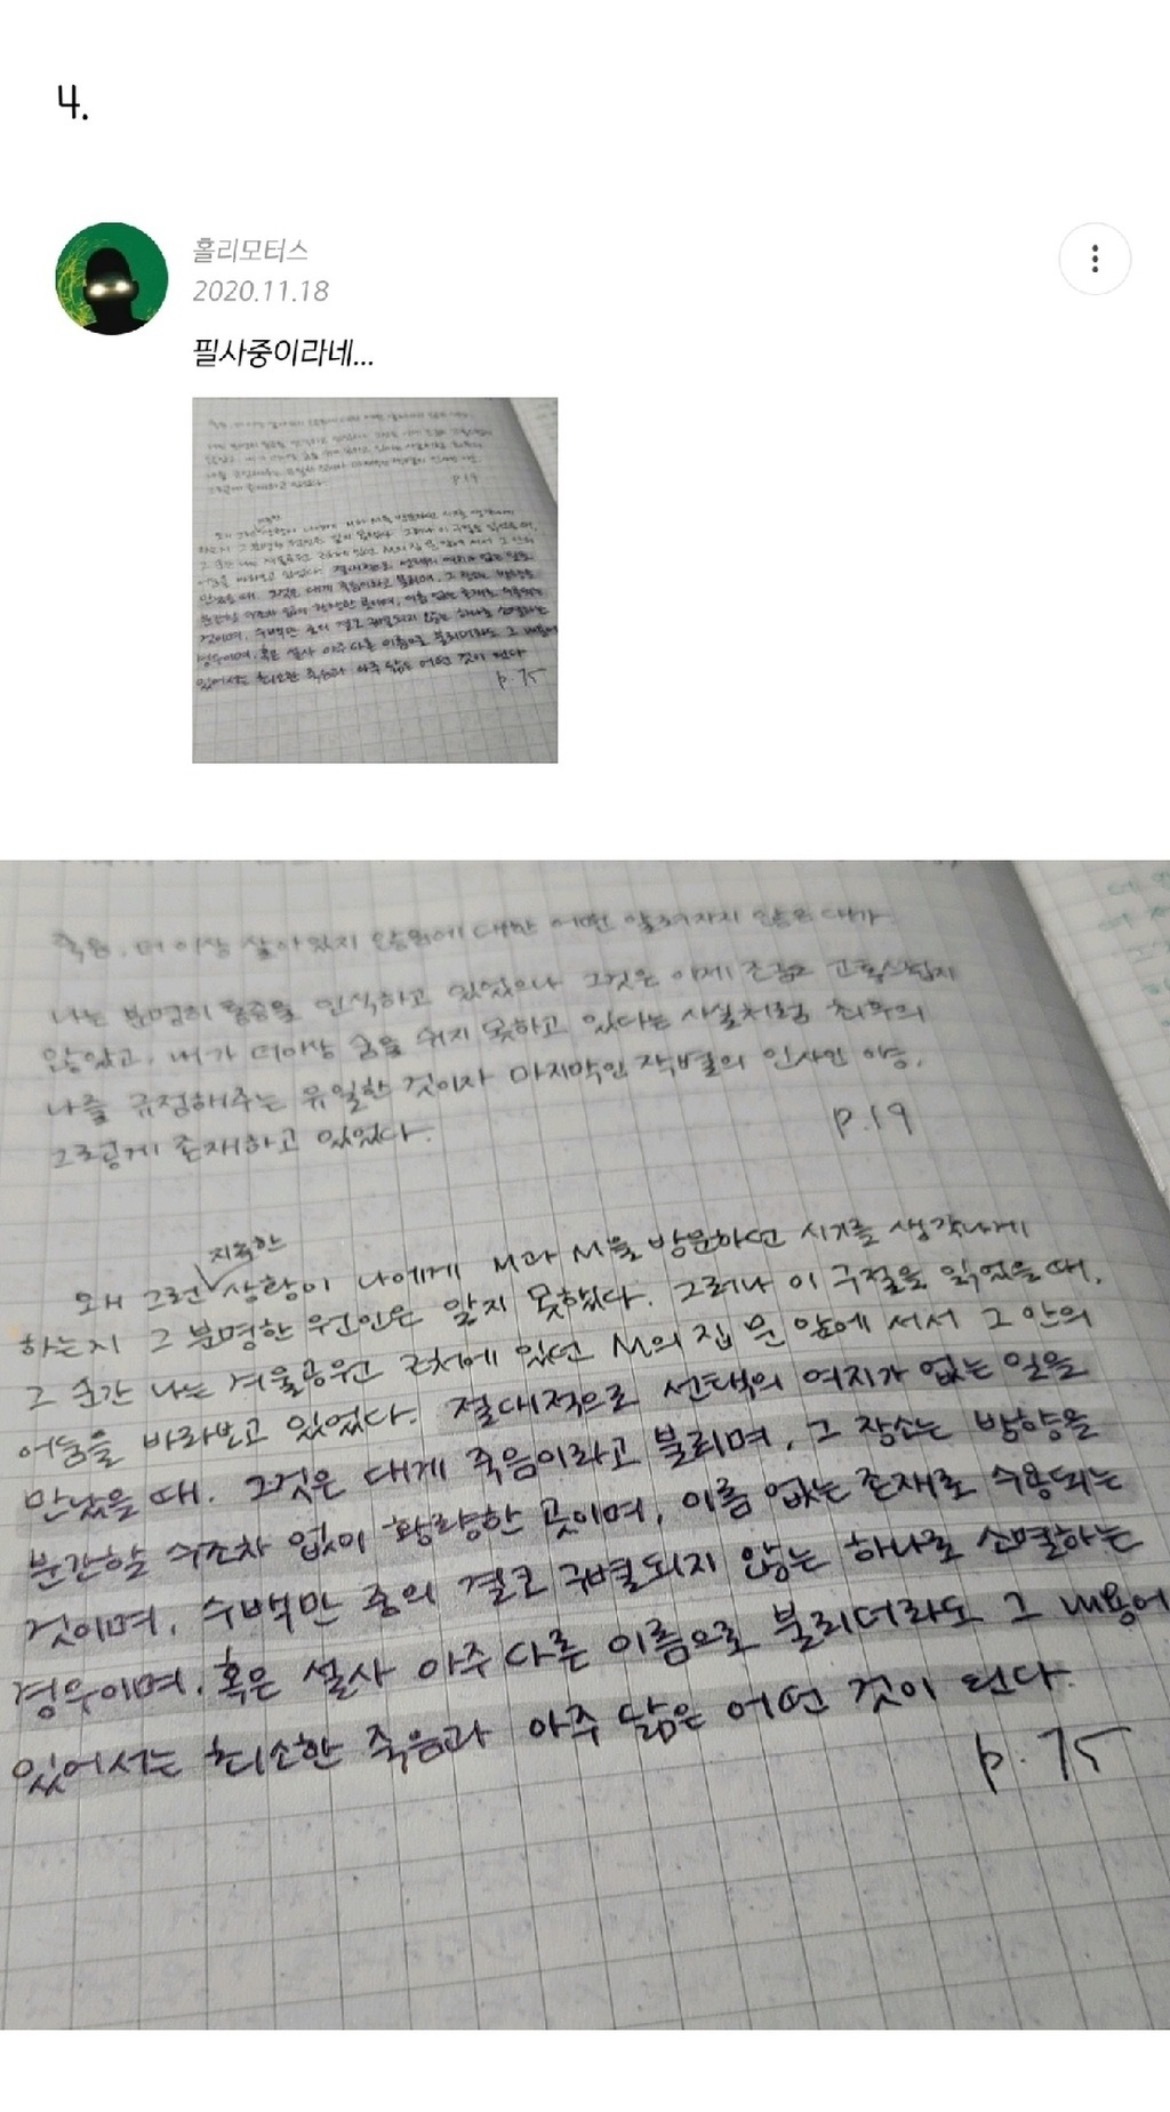 4.
홀리모터스
2020.11.18
필사중이라네...
죽음. 더 이상 살아있지 않음에 대한 어떤 알려지지 않은 대가
나는 분명히 통증을 인식하고 있었으나 그것은 이제 조금도 고통스럽지
않았고, 내가 더이상 숨을 쉬지 못하고 있다는 사실처럼 최후의
나를 규정해주는 유일한 것이자 마지막인 작별의 인사인 양,
그렇게 존재하고 있었다.
p.19
지속한
왜 그런 상황이 나에게 M과 M을 방문하던 시기를 생각나게
하는지 그 분명한 원인은 알지 못했다. 그러나 이 구절을 읽었을 때,
그 순간 나는 겨울공원 근처에 있던 M의 집 문 앞에 서서 그 안의
어둠을 바라보고 있었다. 절대적으로 선택의 여지가 없는 일을
만났을 때. 그것은 대게 죽음이라고 불리며, 그 장소는 방향을
분간할 수조차 없이 황량한 곳이며, 이름 없는 존재로 수용되는
것이며, 수백만 중의 결코 구별되지 않는 하나로 소멸하는
경우이며, 혹은 설사 아주 다른 이름으로 불리더라도 그 내용에
있어서는 최소한 죽음과 아주 닮은 어떤 것이 된다.
p.75